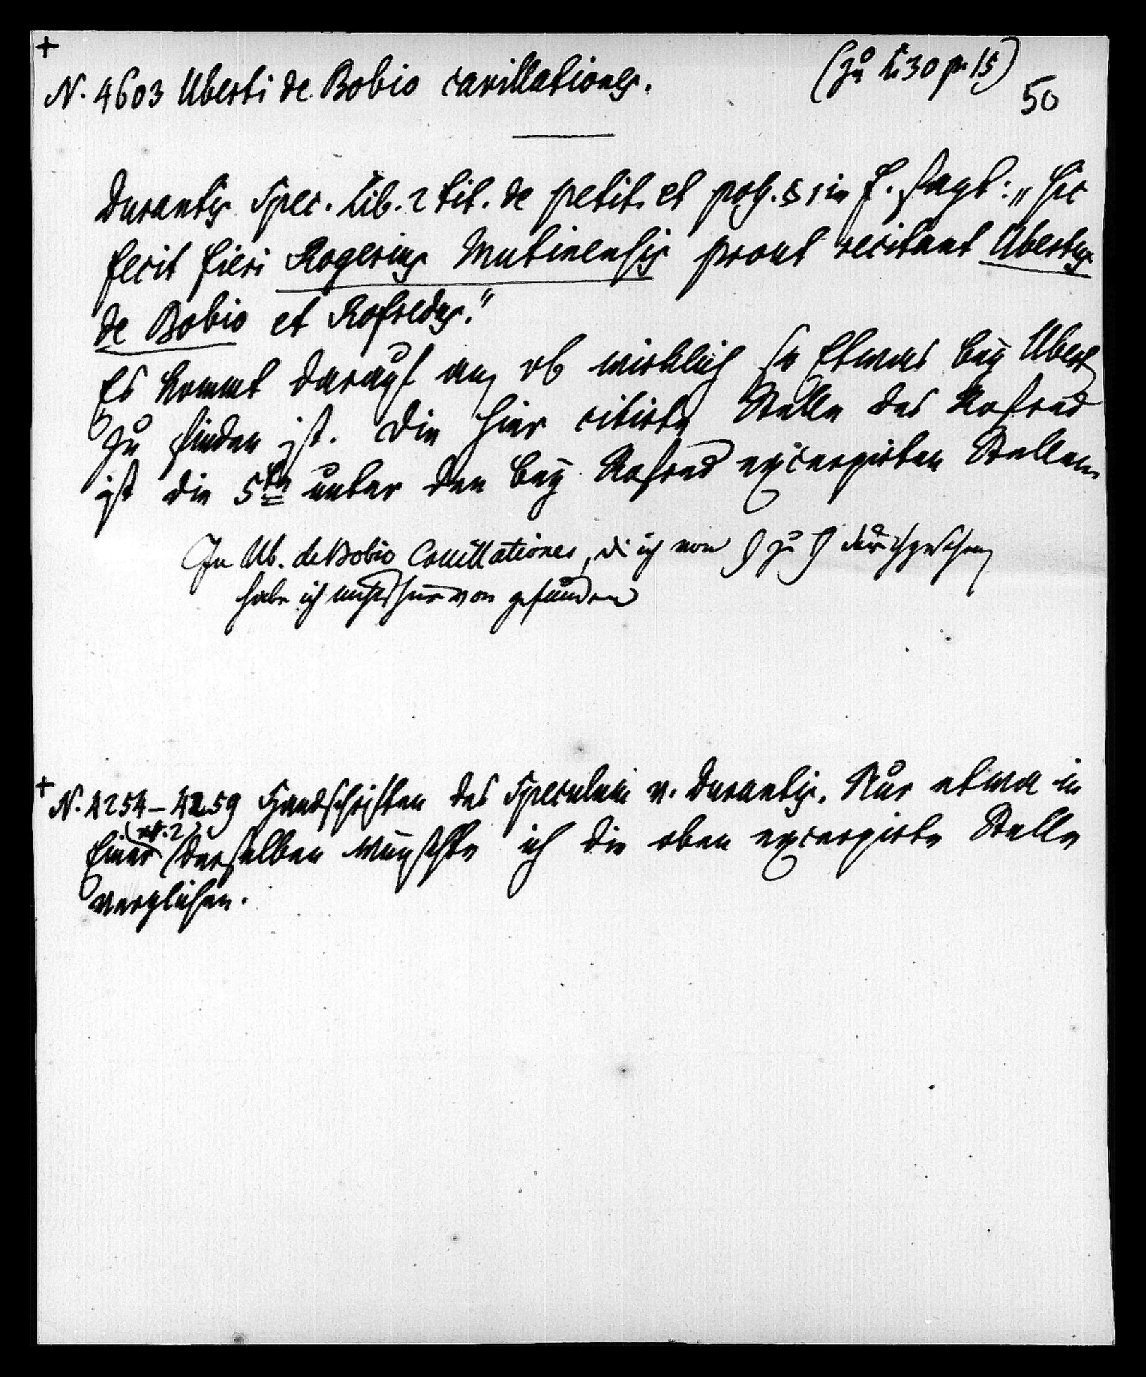 +
N. 4603 Uberti de Bobio cavillationes.
(zu 30 p. 15)
50
Durantis Spec. Lib. 2 tit. de petit. et poss. § 1 in f. sagt: „Hec
fecit fieri Rogerius Mutinensis prout recitant Ubertus
de Bobio et Rofredus."
Es kommt darauf an, ob wirklich so Etwas bey Ubert
zu finden ist. Die hier citirte Stelle des Rofred
ist die 5te unter den bey Rofred excerpirten Stellen.
In Ub. de Bobio Cavillationes, die ich von § zu § durchgesehen,
habe ich nichts hievon gefunden
+
N. 4254–4259 Handschriften des Speculum v. Durantis. Nur etwa in
Einer derselben wünschte ich die oben excerpirte Stelle
verglichen.